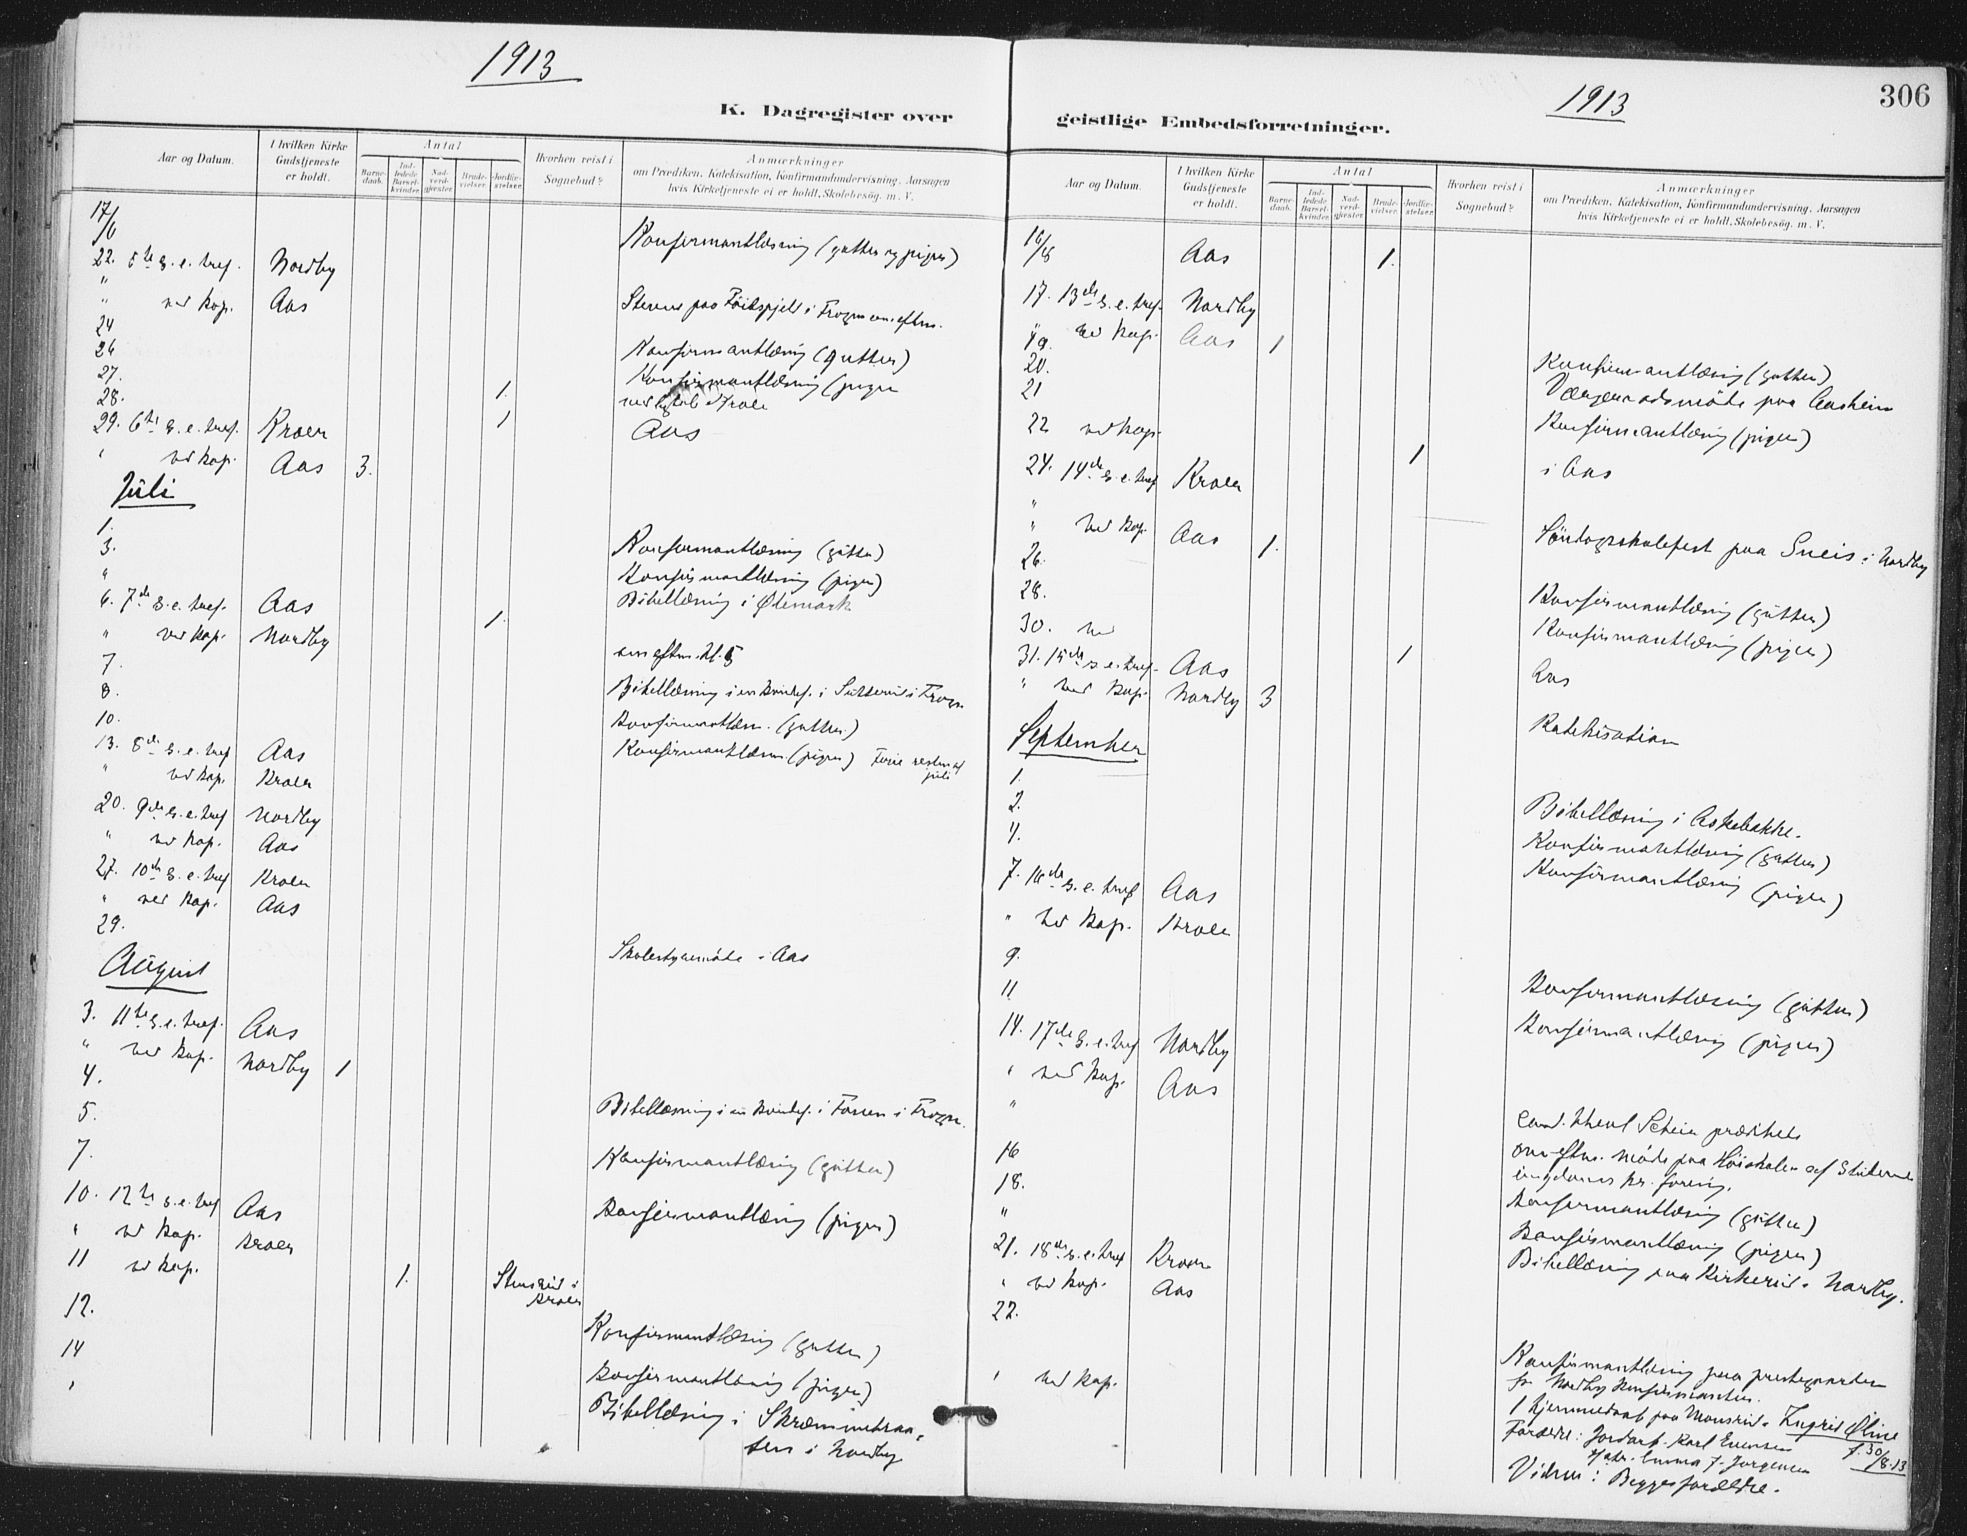 1913
K. Dagregister over
Aar og Datum.
I hvilken Kirke Gudstjeneste er holdt.
Antal
Barnedaab.
Indledede Barselkvinder.
Nadverdgjester.
Brudevielser.
Jordfæstelser.
Hvorhen reist i Sognebud?
Anmærkninger
om Prædiken, Katekisation, Konfirmandundervisning, Aarsagen
hvis Kirketjeneste ei er holdt, Skolebesøg. m. V.
17/6 Konfirmantlæsning (gutter og piger)
22. 5te s. e. tref. Nordby
" ved kap. Aas
24 Konfirmantlæsning (gutter)
26 Konfirmantlæsning (piger
27. 1.
28. 1 Aas
29. 6te s. e. tref. Kroer
" ved kap. Aas 3.
Juli
1. Konfirmantlæsning (gutter)
3. Konfirmantlæsning (piger)
" Bibellæsning i Ølemark
6. 7de s. e. tref. Aas 1.
" ved kap. Nordby em eftm. kl. 5
7. Bibellæsning i en kvindef. i Frogn
8. Konfirmantlæsn. (gutter)
10. Konfirmantlæsn. (piger) Ferie resten af juli
13. 8de s. e. tref Aas
" ved kap. Kroer
20. 9de s. e. tref Nordby
" ved kap. Aas
27. 10de s. e. tref Kroer
" ved kap. Aas
29. Skolestyremøde i Aas
August
3. 11te s. e. tref. Aas
" ved kap. Nordby 1
4. Bibellæsning i en kvindef. i Frogn.
5. Konfirmantlæsning (gutter)
7. Konfirmantlæsning (piger)
10. 12te s. e. tref Aas
" ved kap. Kroer
11 ved kap. 1. Stensrud i Kroer
12. Konfirmantlæsning (gutter)
14 Konfirmantlæsning (piger)
" Bibellæsning i
i Nordby
1913
306
geistlige Embedsforretninger.
Aar og Datum.
I hvilken Kirke Gudstjeneste er holdt.
Antal
Barnedaab.
Indledede Barselkvinder.
Nadverdgjester.
Brudevielser.
Jordfæstelser.
Hvorhen reist i Sognebud?
Anmærkninger
om Prædiken, Katekisation, Konfirmandundervisning, Aarsagen
hvis Kirketjeneste ei er holdt, Skolebesøg. m. V.
16/8 Aas 1.
17. 13de s. e. tref. Nordby
" ved kap. Aas 1
19. Konfirmantlæsning (gutter)
20. Værgeraadsmøde paa Aasheim
21 Konfirmantlæsning (piger)
22 ved kap. 1 i Aas
24. 14de s. e. tref Kroer
" Søndagsskolefest paa Sneis i Nordby
" ved kap. Aas 1.
26. Konfirmantlæsning (gutter)
28. Konfirmantlæsning (piger)
30. ved 1 Aas
31. 15de s. e. tref. Aas Katekisation
" ved kap. Nordby 3
September
1. Bibellæsning i Askebakke.
2. Konfirmantlæsning (gutter)
4. Konfirmantlæsning (piger)
7. 16de s. e. tref Aas
" ved kap. Kroer
9. Konfirmantlæsning (gutter)
11 Konfirmantlæsning (piger)
14. 17de s. e. tref Nordby
" ved kap. Aas cand. theol Schein prædiket
" om eftm. møde paa Høiskolen af
kr. forening.
16 Konfirmantlæsning (gutter)
18. Konfirmantlæsning (piger)
" Bibellæsning paa Kirkerud i Nordby.
21. 18de s. e. tref Kroer
" ved kap. Aas
22. Konfirmantlæsning paa prestegaarden
for Nordby konfirmanter.
" ved kap. 1 hjemmedaab paa Monsrud. Ingrid Oline
f. 30/8.13
Forældre: Jordarb. Karl Evensen
Emma f. Jørgensen
Vidner: Begge forældre.